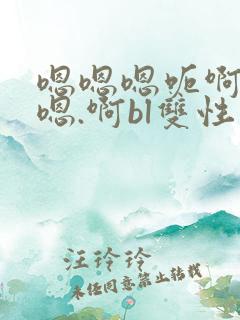 嗯嗯嗯呃啊
嗯.啊bl雙性
汪玲玲
未任同意禁止转载